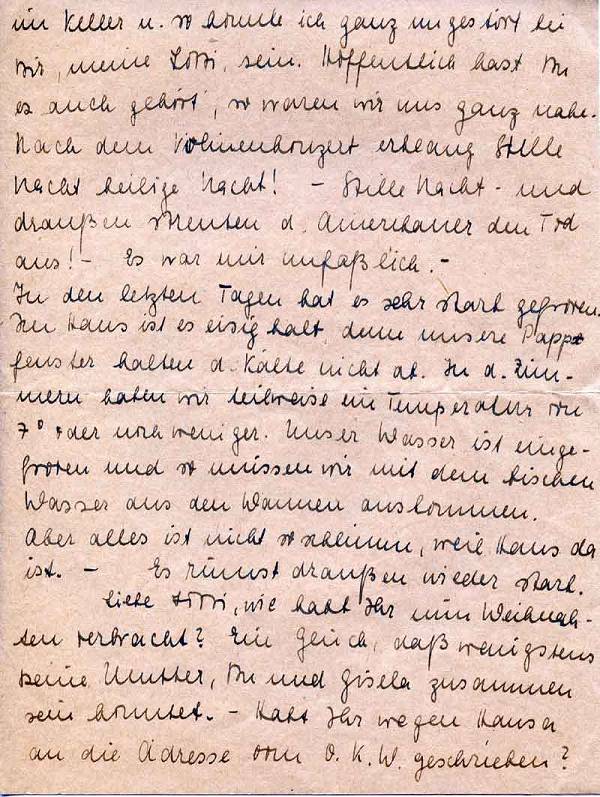 im Keller u. so konnte ich ganz ungestört bei
Dir, meine Lotti, sein. Hoffentlich hast Du
es auch gehört, so waren wir uns ganz nahe.
Nach dem Violinenkonzert erklang Stille
Nacht heilige Nacht! – Stille Nacht - und
draußen streuten d. Amerikaner den Tod
aus! – Es war mir unfaßlich. –
In den letzten Tagen hat es sehr stark gefroren.
Im Haus ist es eisig kalt, denn unsere Papp
fenster halten d. Kälte nicht ab. In d. Zim-
mern haben wir teilweise eine Temperatur von
7° oder noch weniger. Unser Wasser ist einge-
froren und so müssen wir mit dem bischen
Wasser aus den Wannen auskommen.
Aber alles ist nicht so schlimm, weil Hans da
ist. – Es rumst draußen wieder stark.
Liebe Lotti, wie habt Ihr nun Weihnach-
ten verbracht? Ein Glück, daß wenigstens
Deine Mutter, Du und Gisela zusammen
sein konntet. – Habt Ihr wegen Hans
an die Adresse vom O. K. W. geschrieben?